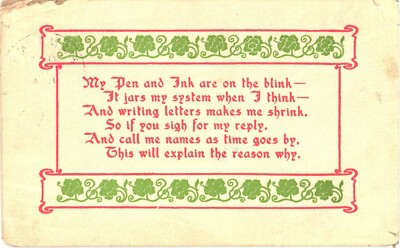 My Pen and Ink are on the blink—
It jars my system when I think—
And writing letters makes me shrink.
So if you sigh for my reply.
And call me names as time goes by,
This will explain the reason why.